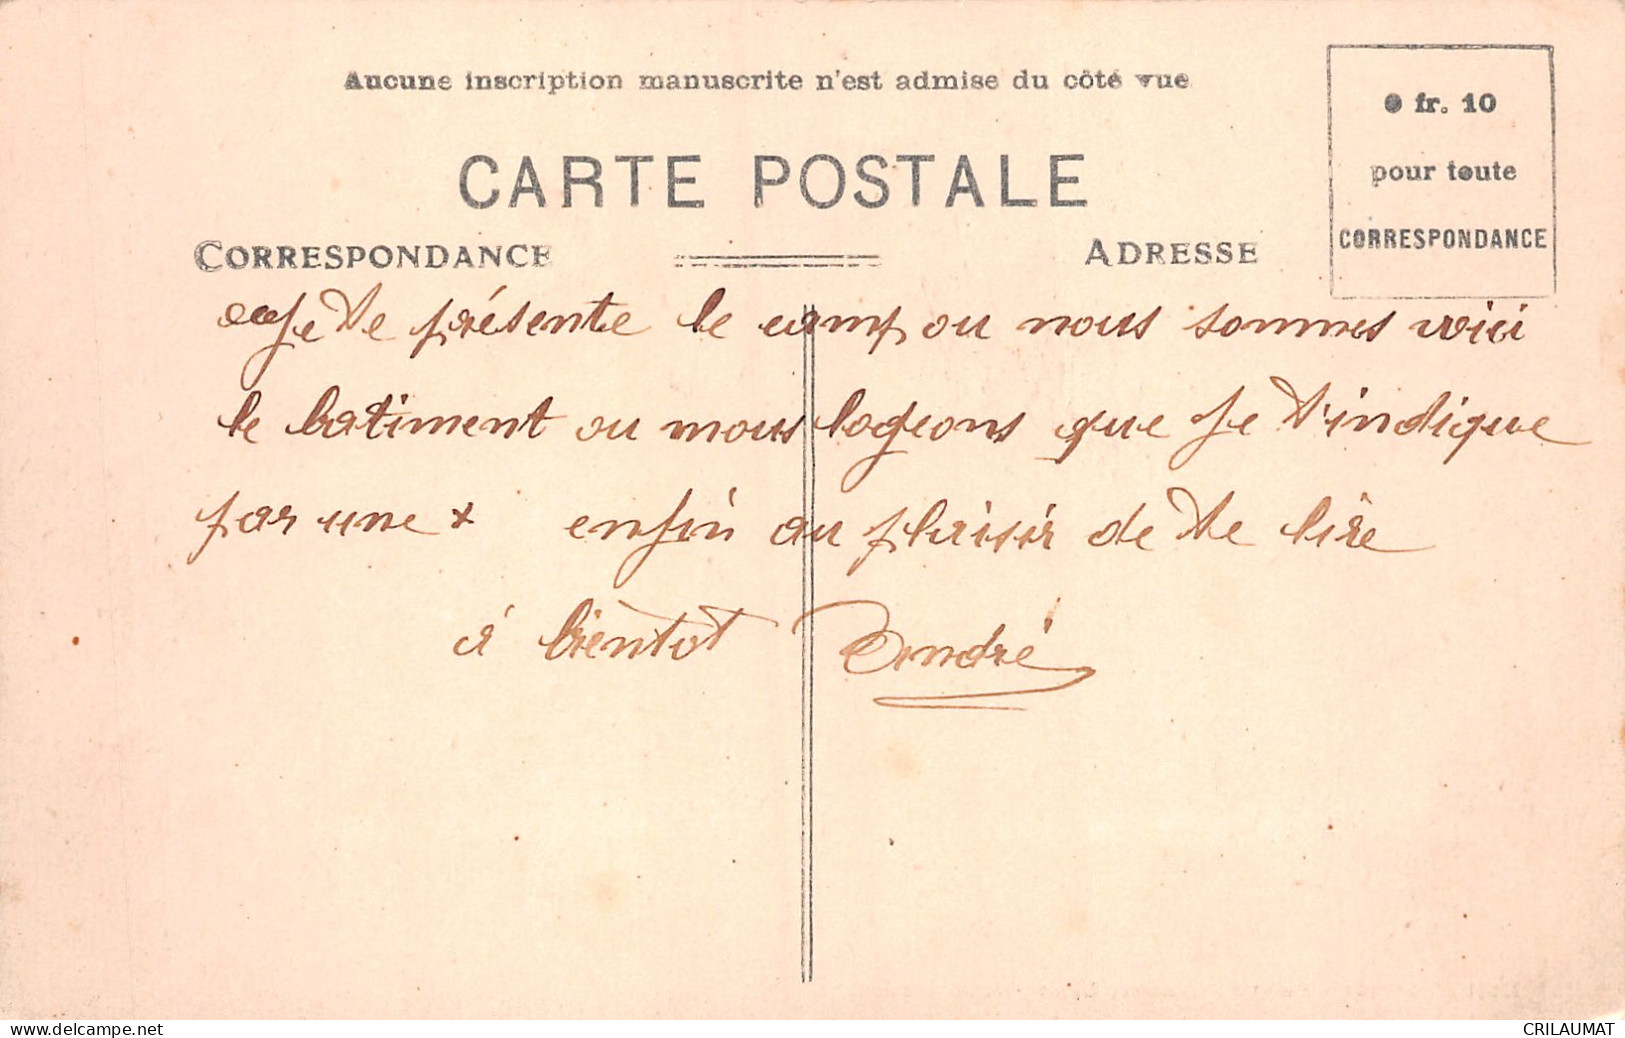 Aucune inscription manuscrite n'est admise du côté vue
0 fr. 10
pour toute
CORRESPONDANCE
CARTE POSTALE
CORRESPONDANCE
ADRESSE
Je te présente le camp ou nous sommes voici
le batiment ou nous logeons que je t'indique
par une x enfin au plaisir de te lire
à bientot André
CRILAUMAT
delcampe.net